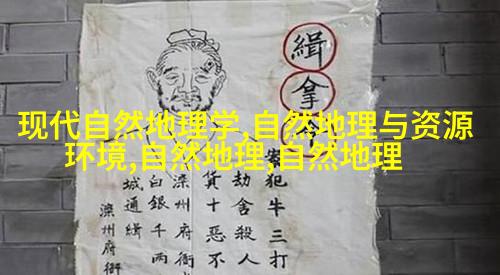 现代自然地理学,自然地理与资源
环境,自然地理,自然地理
緝拿
犯牛三打
劫舍殺人
貨十惡不
滦州府衙
白銀千兩
城通緝
滦州府衙